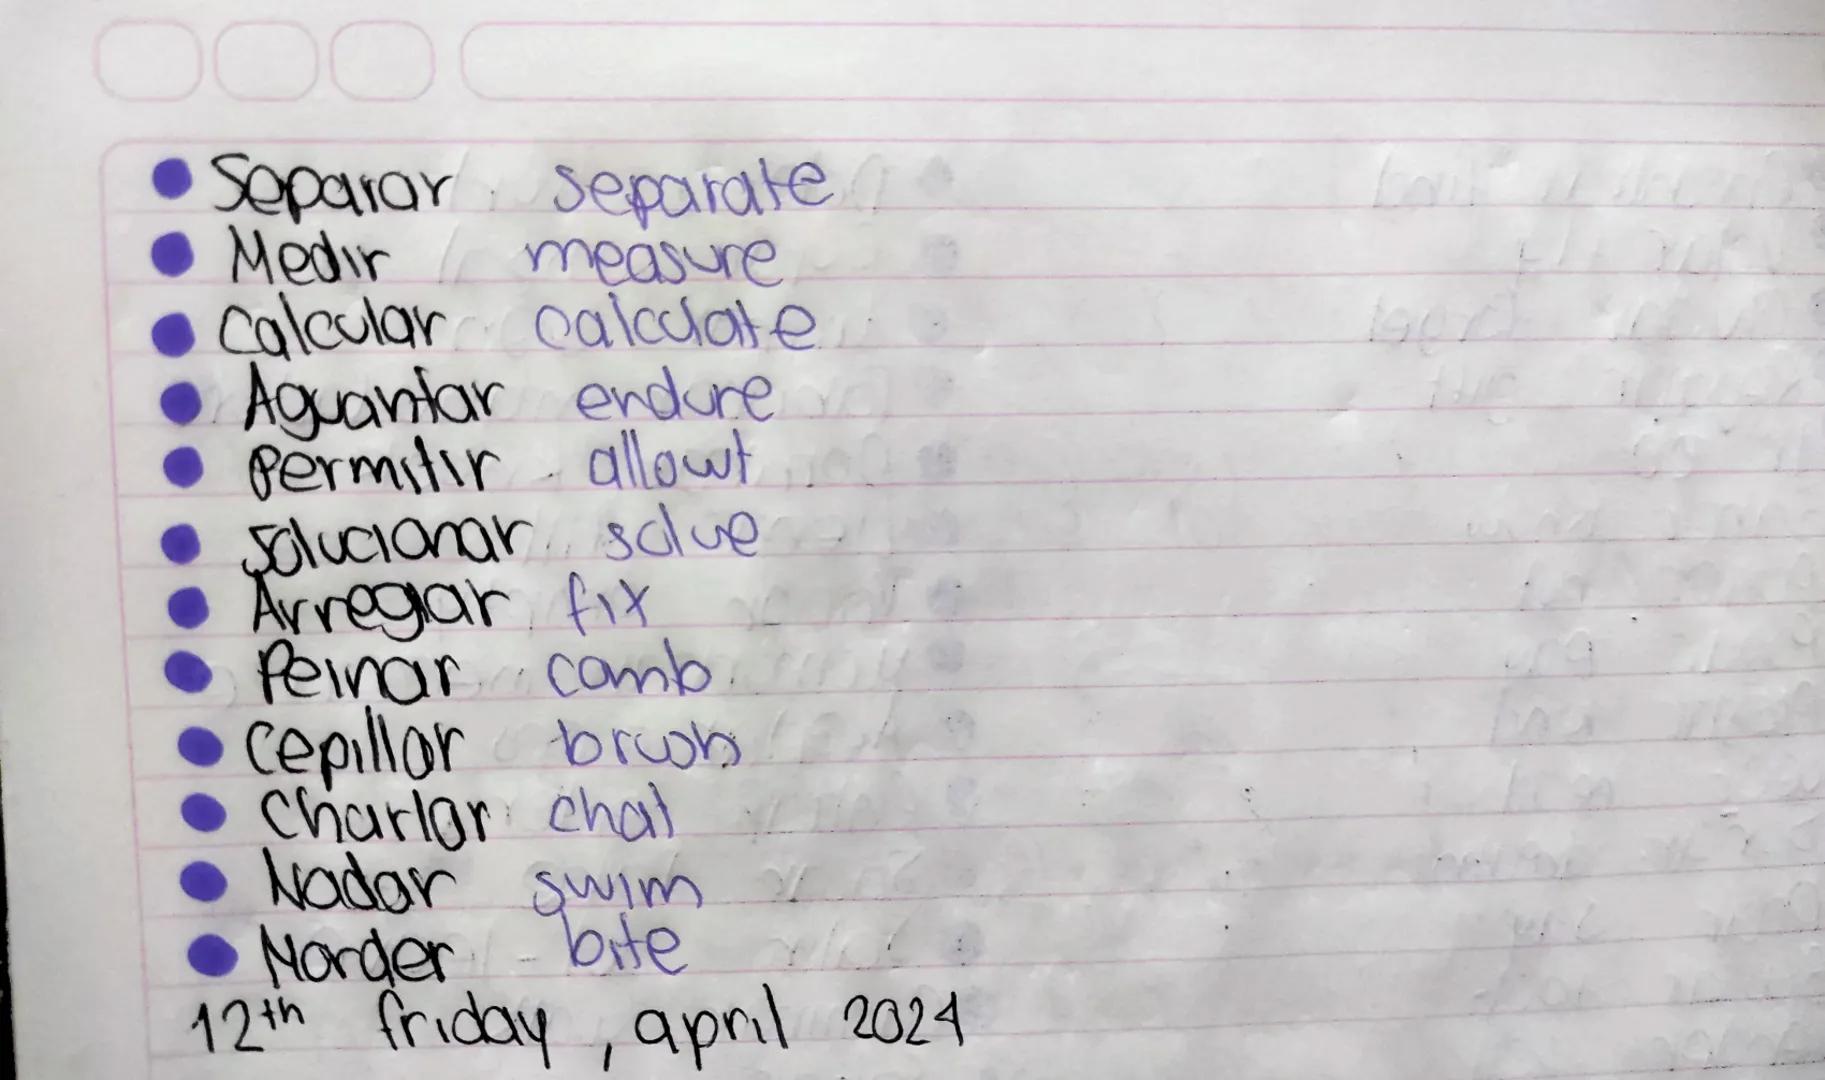 Separar separate
Medir measure
Calcular calculate
Aguantar endure
Permitir allowt
Solucionar solve
Arreglar fix
Peinar comb
Cepillar brush
Charlar chat
Nadar swim
Morder bite
12th friday, april 2024